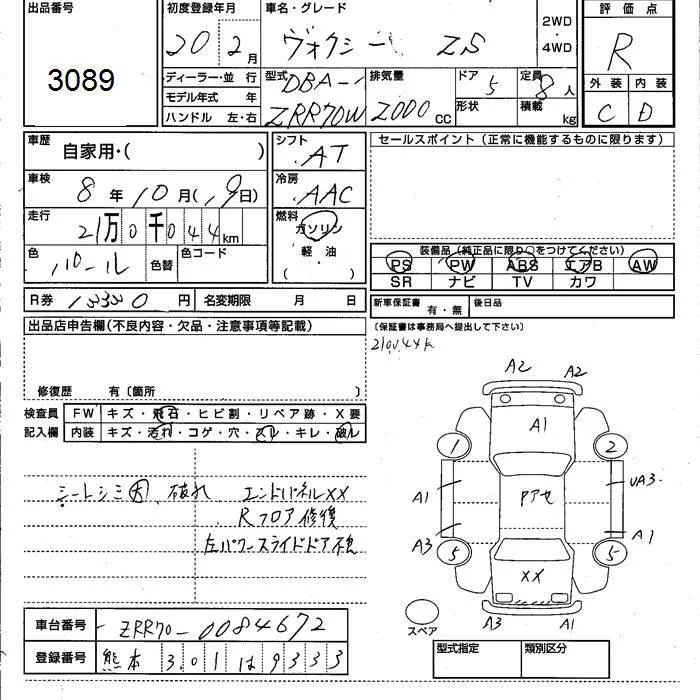 出品番号
3089
初度登録年月
20 2 月
車名・グレード
ヴォクシー ZS
2WD
・
4WD
評価点
R
外装 内装
C D
ディーラー・並行
モデル年式 年
ハンドル 左・右
型式 DBA-
ZRR70W
排気量
2000 CC
ドア 5
形状
定員 8 人
積載 kg
車歴
自家用・( )
車検
8 年 10 月 (, 9日)
走行
21万0千044km
色 色替 色コード
パール
シフト
AT
冷房
AAC
燃料
ガソリン
軽・油
( )
セールスポイント(正常に機能するものに限ります)
装備品(純正品に限り○をつけてください)
PS PW ABS エアB AW
SR ナビ TV カワ
R券 13330 円 名変期限 月 日
新車保証書 有・無 後日品
(保証書は事務局へ提出して下さい)
210,044k
出品店申告欄(不良内容・欠品・注意事項等記載)
修復歴 有〔箇所 〕
検査員 FW キズ・飛石・ヒビ割・リペア跡・X要
記入欄 内装 キズ・汚れ・コゲ・穴・スレ・キレ・破レ
シートシミ大 破れ エンドパネルXX
Rフロア修復
左パワースライドドア不良
A2 A2
A1
1 2
A1 Pアセ UA3
A3 A1
5 5
XX
スペア A3 A1
車台番号 ZRR70-0084672
登録番号 熊本 301 は 9333
型式指定 類別区分